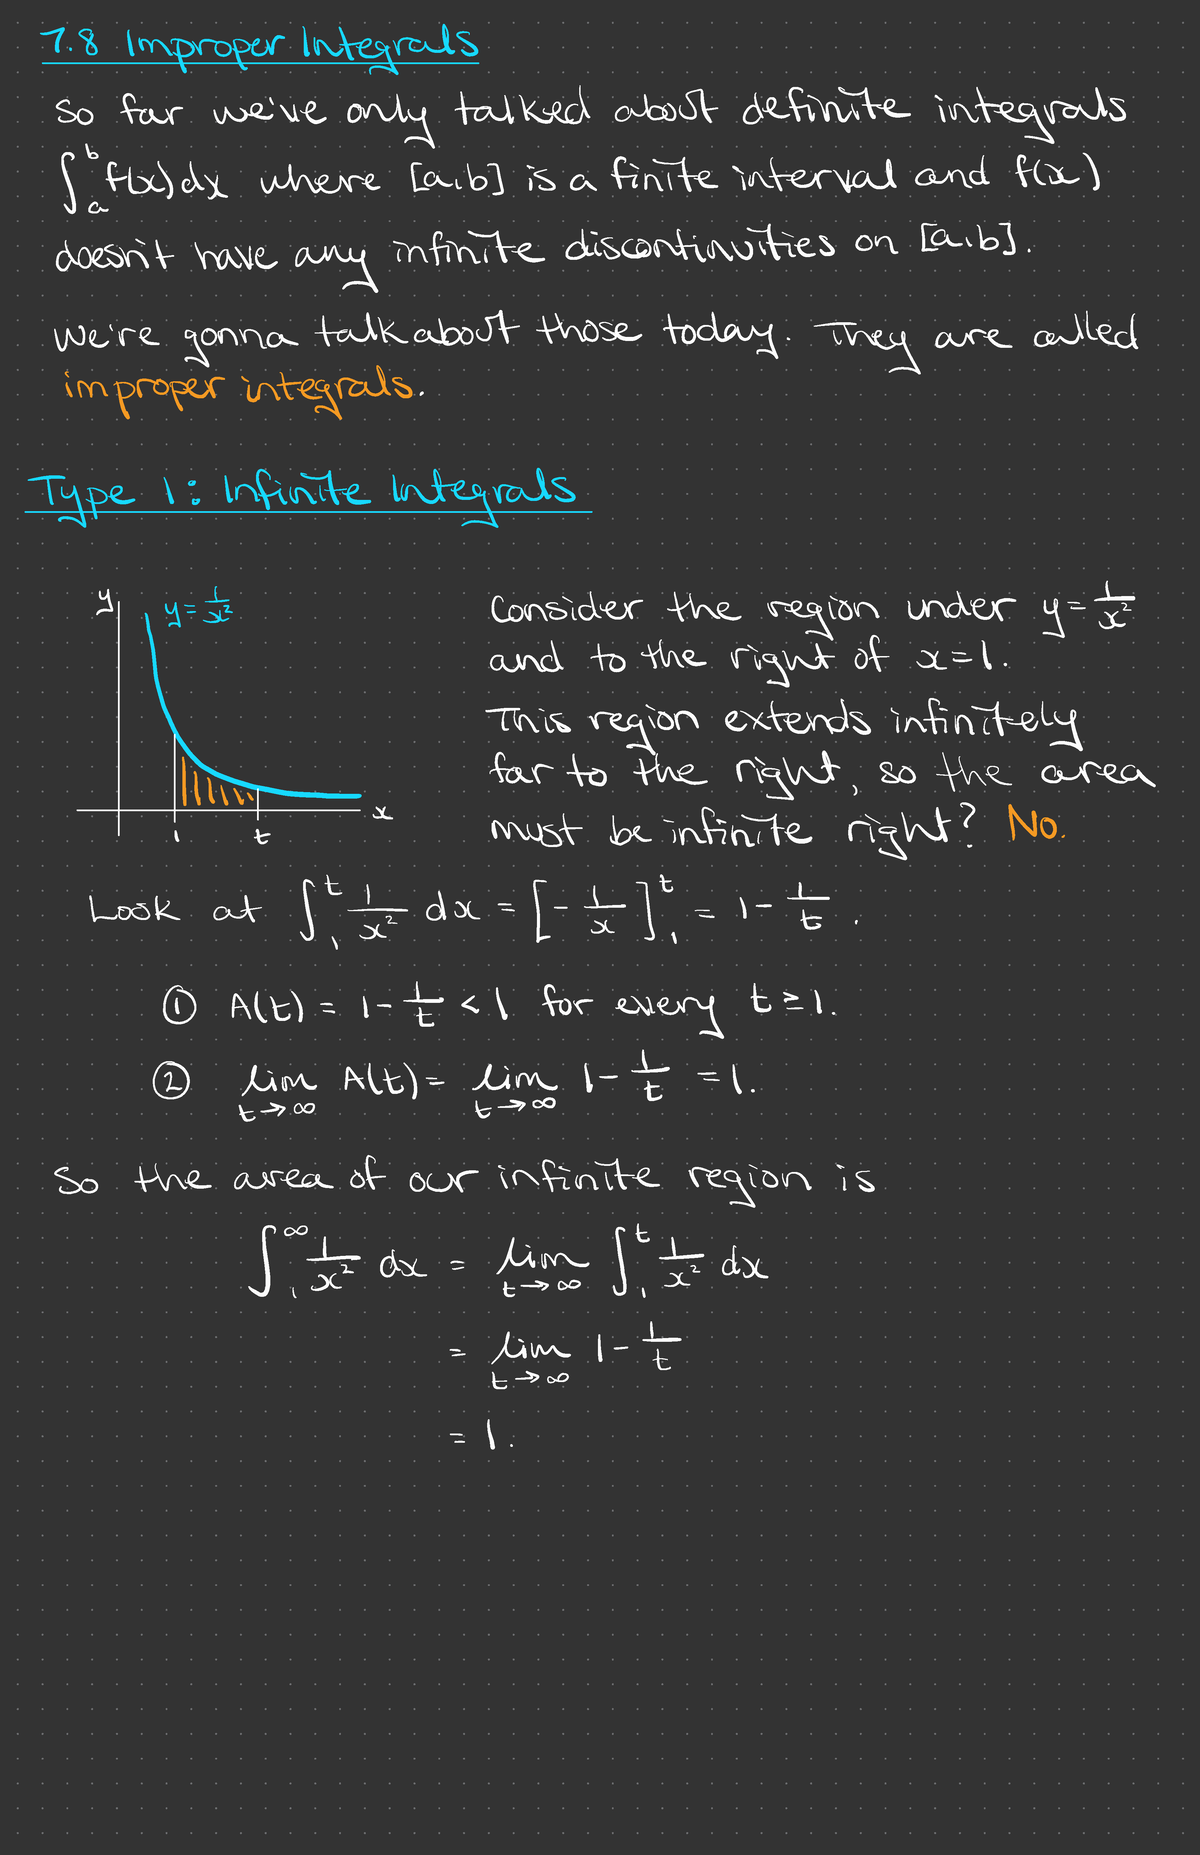 7.8 Improper Integrals
So far we've only talked about definite integrals
∫_a^b f(x)dx where [a,b] is a finite interval and f(x)
doesn't have any infinite discontinuities on [a,b].
We're gonna talk about those today. They are called
improper integrals.
Type 1: Infinite Integrals
y
y = 1/x²
x
1
t
Consider the region under y = 1/x²
and to the right of x=1.
This region extends infinitely
far to the right, so the area
must be infinite right? No.
Look at ∫_1^t 1/x² dx = [-1/x]_1^t = 1 - 1/t.
① A(t) = 1 - 1/t < 1 for every t ≥ 1.
② lim_{t→∞} A(t) = lim_{t→∞} 1 - 1/t = 1.
So the area of our infinite region is
∫_1^∞ 1/x² dx = lim_{t→∞} ∫_1^t 1/x² dx
= lim_{t→∞} 1 - 1/t
= 1.